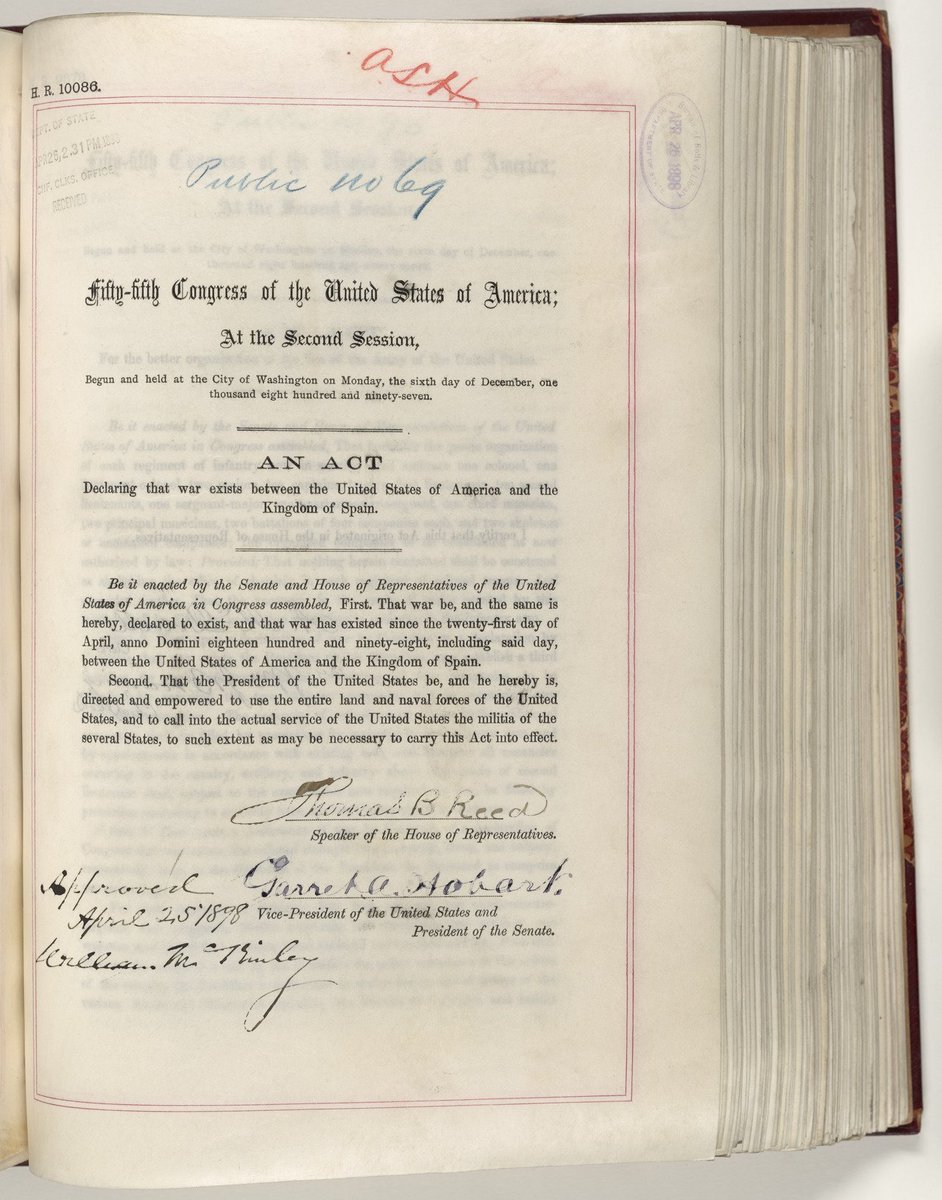 A S H
H. R. 10086.
DEPT. OF STATE
APR 26, 2.31 PM 1898
CLKS. OFFICE
RECEIVED
APR 26 1898
Public no 69
Fifty-fifth Congress of the United States of America;
At the Second Session,
Begun and held at the City of Washington on Monday, the sixth day of December, one
thousand eight hundred and ninety-seven.
AN ACT
Declaring that war exists between the United States of America and the
Kingdom of Spain.
Be it enacted by the Senate and House of Representatives of the United
States of America in Congress assembled, First. That war be, and the same is
hereby, declared to exist, and that war has existed since the twenty-first day of
April, anno Domini eighteen hundred and ninety-eight, including said day,
between the United States of America and the Kingdom of Spain.
Second. That the President of the United States be, and he hereby is,
directed and empowered to use the entire land and naval forces of the United
States, and to call into the actual service of the United States the militia of the
several States, to such extent as may be necessary to carry this Act into effect.
Thomas B Reed
Speaker of the House of Representatives.
Garret A. Hobart.
Vice-President of the United States and
President of the Senate.
Approved
April 25 1898
William McKinley